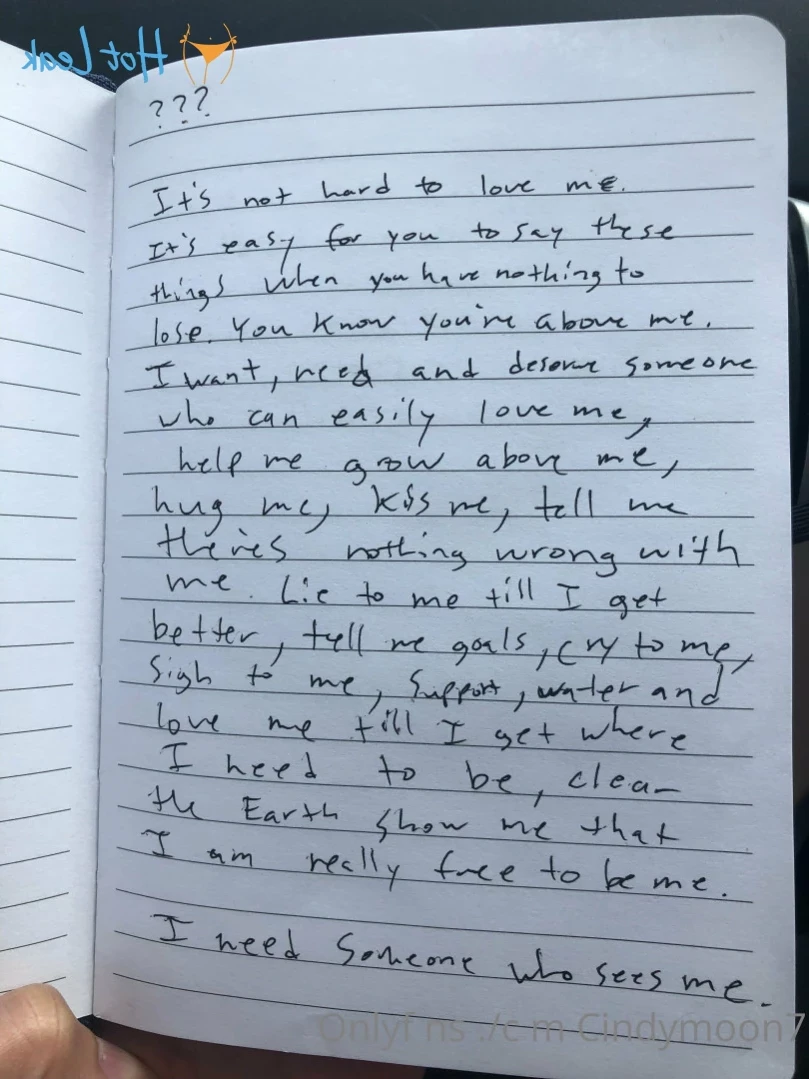 Hot Leak
???
It's not hard to love me.
It's easy for you to say these
things when you have nothing to
lose. You know you're above me.
I want, need and deserve someone
who can easily love me,
help me grow above me,
hug me, kiss me, tell me
there's nothing wrong with
me. Lie to me till I get
better, tell me goals, cry to me,
Sigh to me, Support, water and
love me till I get where
I need to be, clear
the Earth show me that
I am really free to be me.
I need someone who sees me.
Cindymoon7